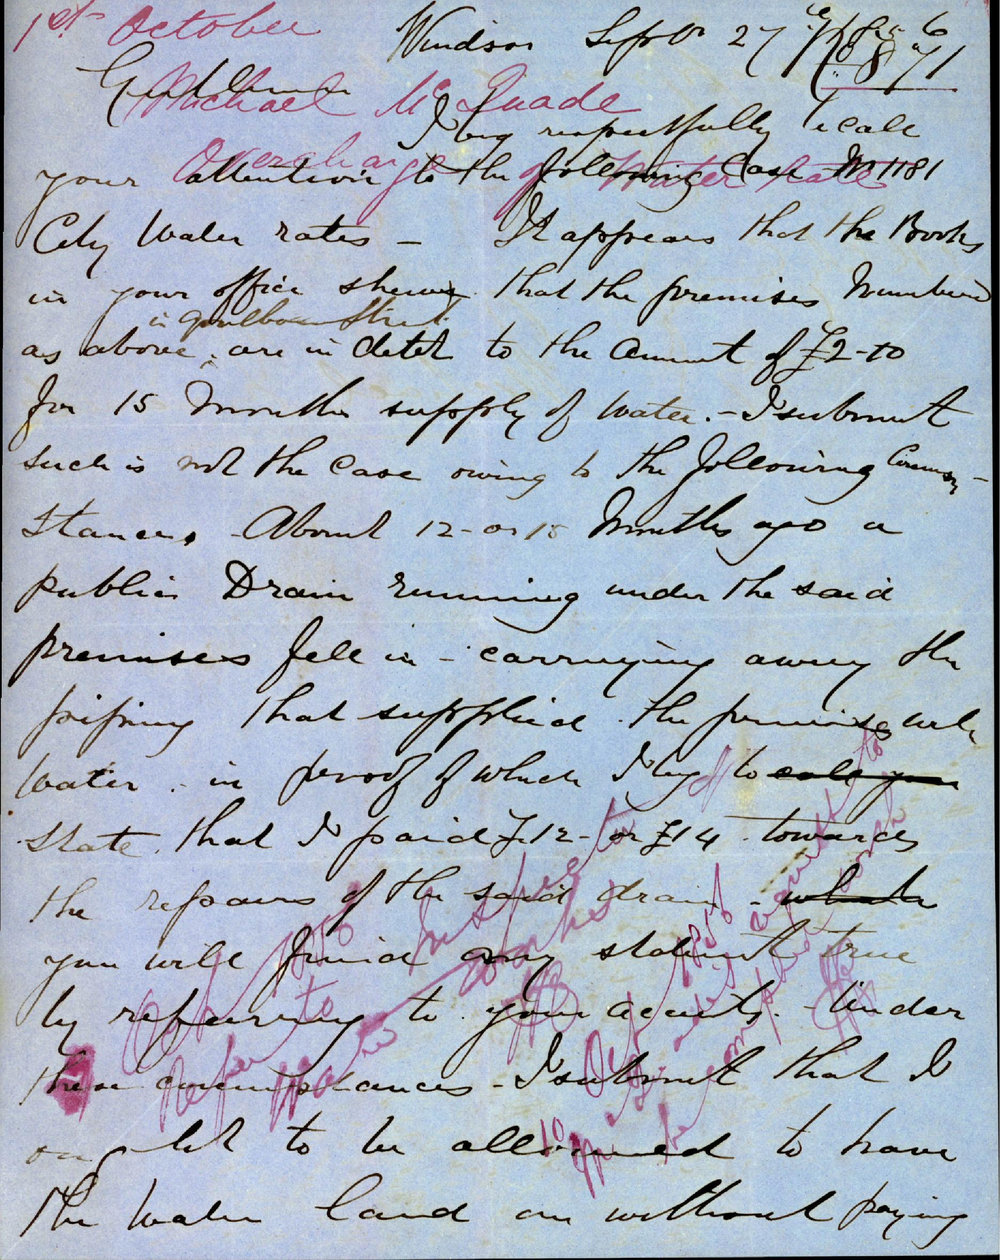 1st October
Windsor Septr 27
Gentlemen
Michael McQuade
I beg respectfully to call
Overcharge of Water Rates
your attention to the following Case No 1181
City Water rates – It appears that the Books
in your office shewing that the premises Numbered
in Goulbourn Street
as above, are in debt to the Amount of £2-10
for 15 Months supply of water. – I submit
such is not the case owing to the following Circum-
stances. About 12 - or 15 Months ago a
public Drain running under the said
premises fell in - carrying away the
piping that supplied the premises with
water. in proof of which I beg to call you
state that I paid £12 - or £14 towards
the repairs of the said drain -
you will find my statement true
by referring to your accounts. - Under
these circumstances - I submit that I
ought to be allowed to have
the water laid on without paying
Refer to Inspector of
Water Works